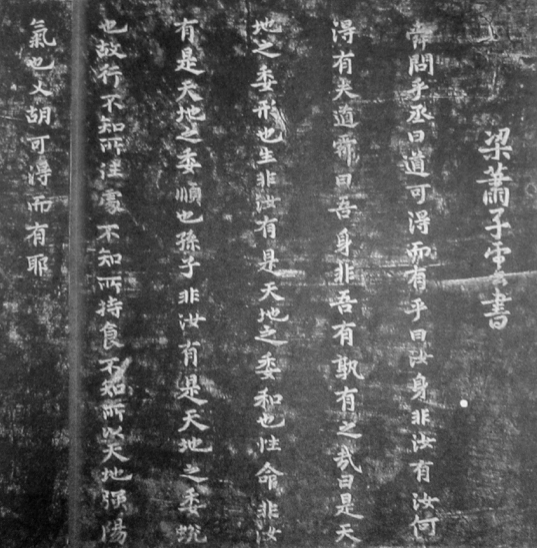 梁蕭子雲書
舜問乎丞曰道可淂而有乎曰汝身非汝有汝何
淂有夫道舜曰吾身非吾有孰有之哉曰是天
地之委形也生非汝有是天地之委和也性命非汝
有是天地之委順也孫子非汝有是天地之委蛻
也故行不知所往處不知所持食不知所以天地强陽
氣也又胡可淂而有耶